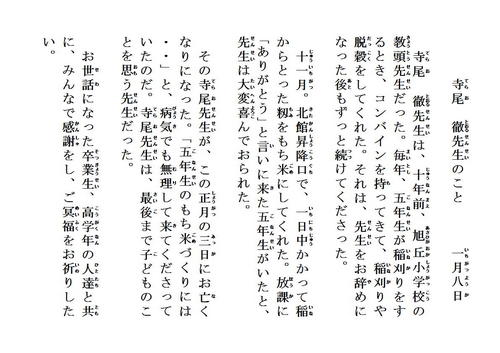 寺尾　徹先生のこと　　　一月八日
寺尾　徹先生は、十年前、旭丘小学校の
教頭先生だった。毎年、五年生が稲刈りをす
るとき、コンバインを持ってきて、稲刈りや
脱穀をしてくれた。それは、先生をお辞めに
なった後もずっと続けてくださった。
十一月。北館昇降口で、一日中かかって稲
からとった籾をもち米にしてくれた。放課に
「ありがとう」と言いに来た五年生がいたと、
先生は大変喜んでおられた。
その寺尾先生が、この正月の三日にお亡く
なりになった。「五年生のもち米づくりには
・・」と、病気でも無理して来てくださって
いたのだ。寺尾先生は、最後まで子どものこ
とを思う先生だった。
お世話になった卒業生、高学年の人達と共
に、みんなで感謝をし、ご冥福をお祈りした
い。